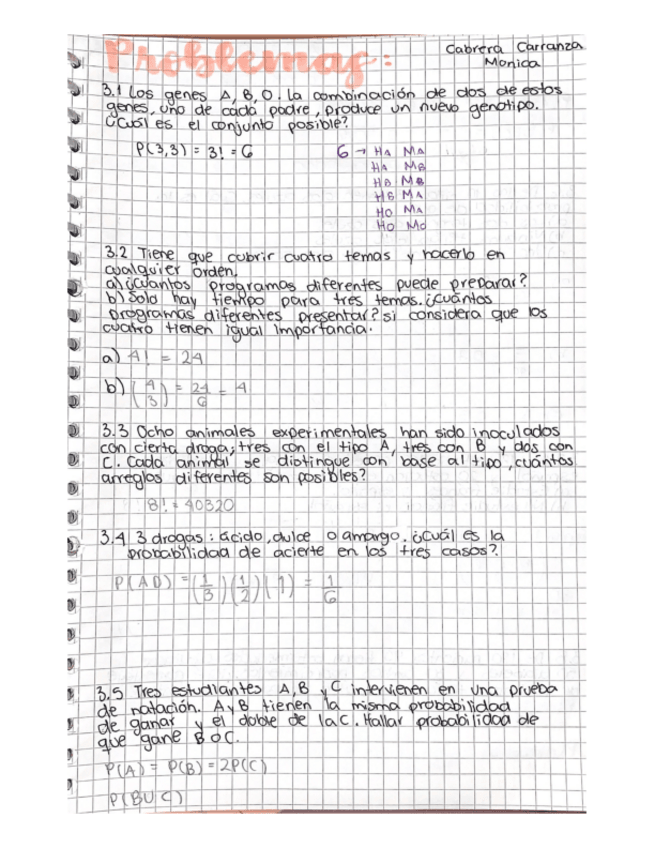 Problemas:
Cabrera Carranza
Monica
3.1 Los genes A, B, O. la combinación de dos de estos
genes, uno de cada padre, produce un nuevo genotipo.
¿Cuál es el conjunto posible?
P(3,3) = 3! = 6
6 → HA MA
HA MB
HB MB
HB MA
HO MA
HO MO
3.2 Tiene que cubrir cuatro temas y hacerlo en
cualquier orden.
a) ¿Cuántos programas diferentes puede preparar?
b) Solo hay tiempo para tres temas. ¿Cuántos
programas diferentes presentar? si considera que los
cuatro tienen igual importancia.
a) 4! = 24
b) (4/3) = 24/6 = 4
3.3 Ocho animales experimentales han sido inoculados
con cierta droga; tres con el tipo A, tres con B y dos con
C. Cada animal se distingue con base al tipo, cuántos
arreglos diferentes son posibles?
8! = 40320
3.4 3 drogas: ácido, dulce o amargo. ¿Cuál es la
probabilidad de acierte en los tres casos?
P(AD) = (1/3)(1/2)(1) = 1/6
3.5 Tres estudiantes A, B y C intervienen en una prueba
de natación. A y B tienen la misma probabilidad
de ganar y el doble de la C. Hallar probabilidad de
que gane B o C.
P(A) = P(B) = 2P(C)
P(BUC)